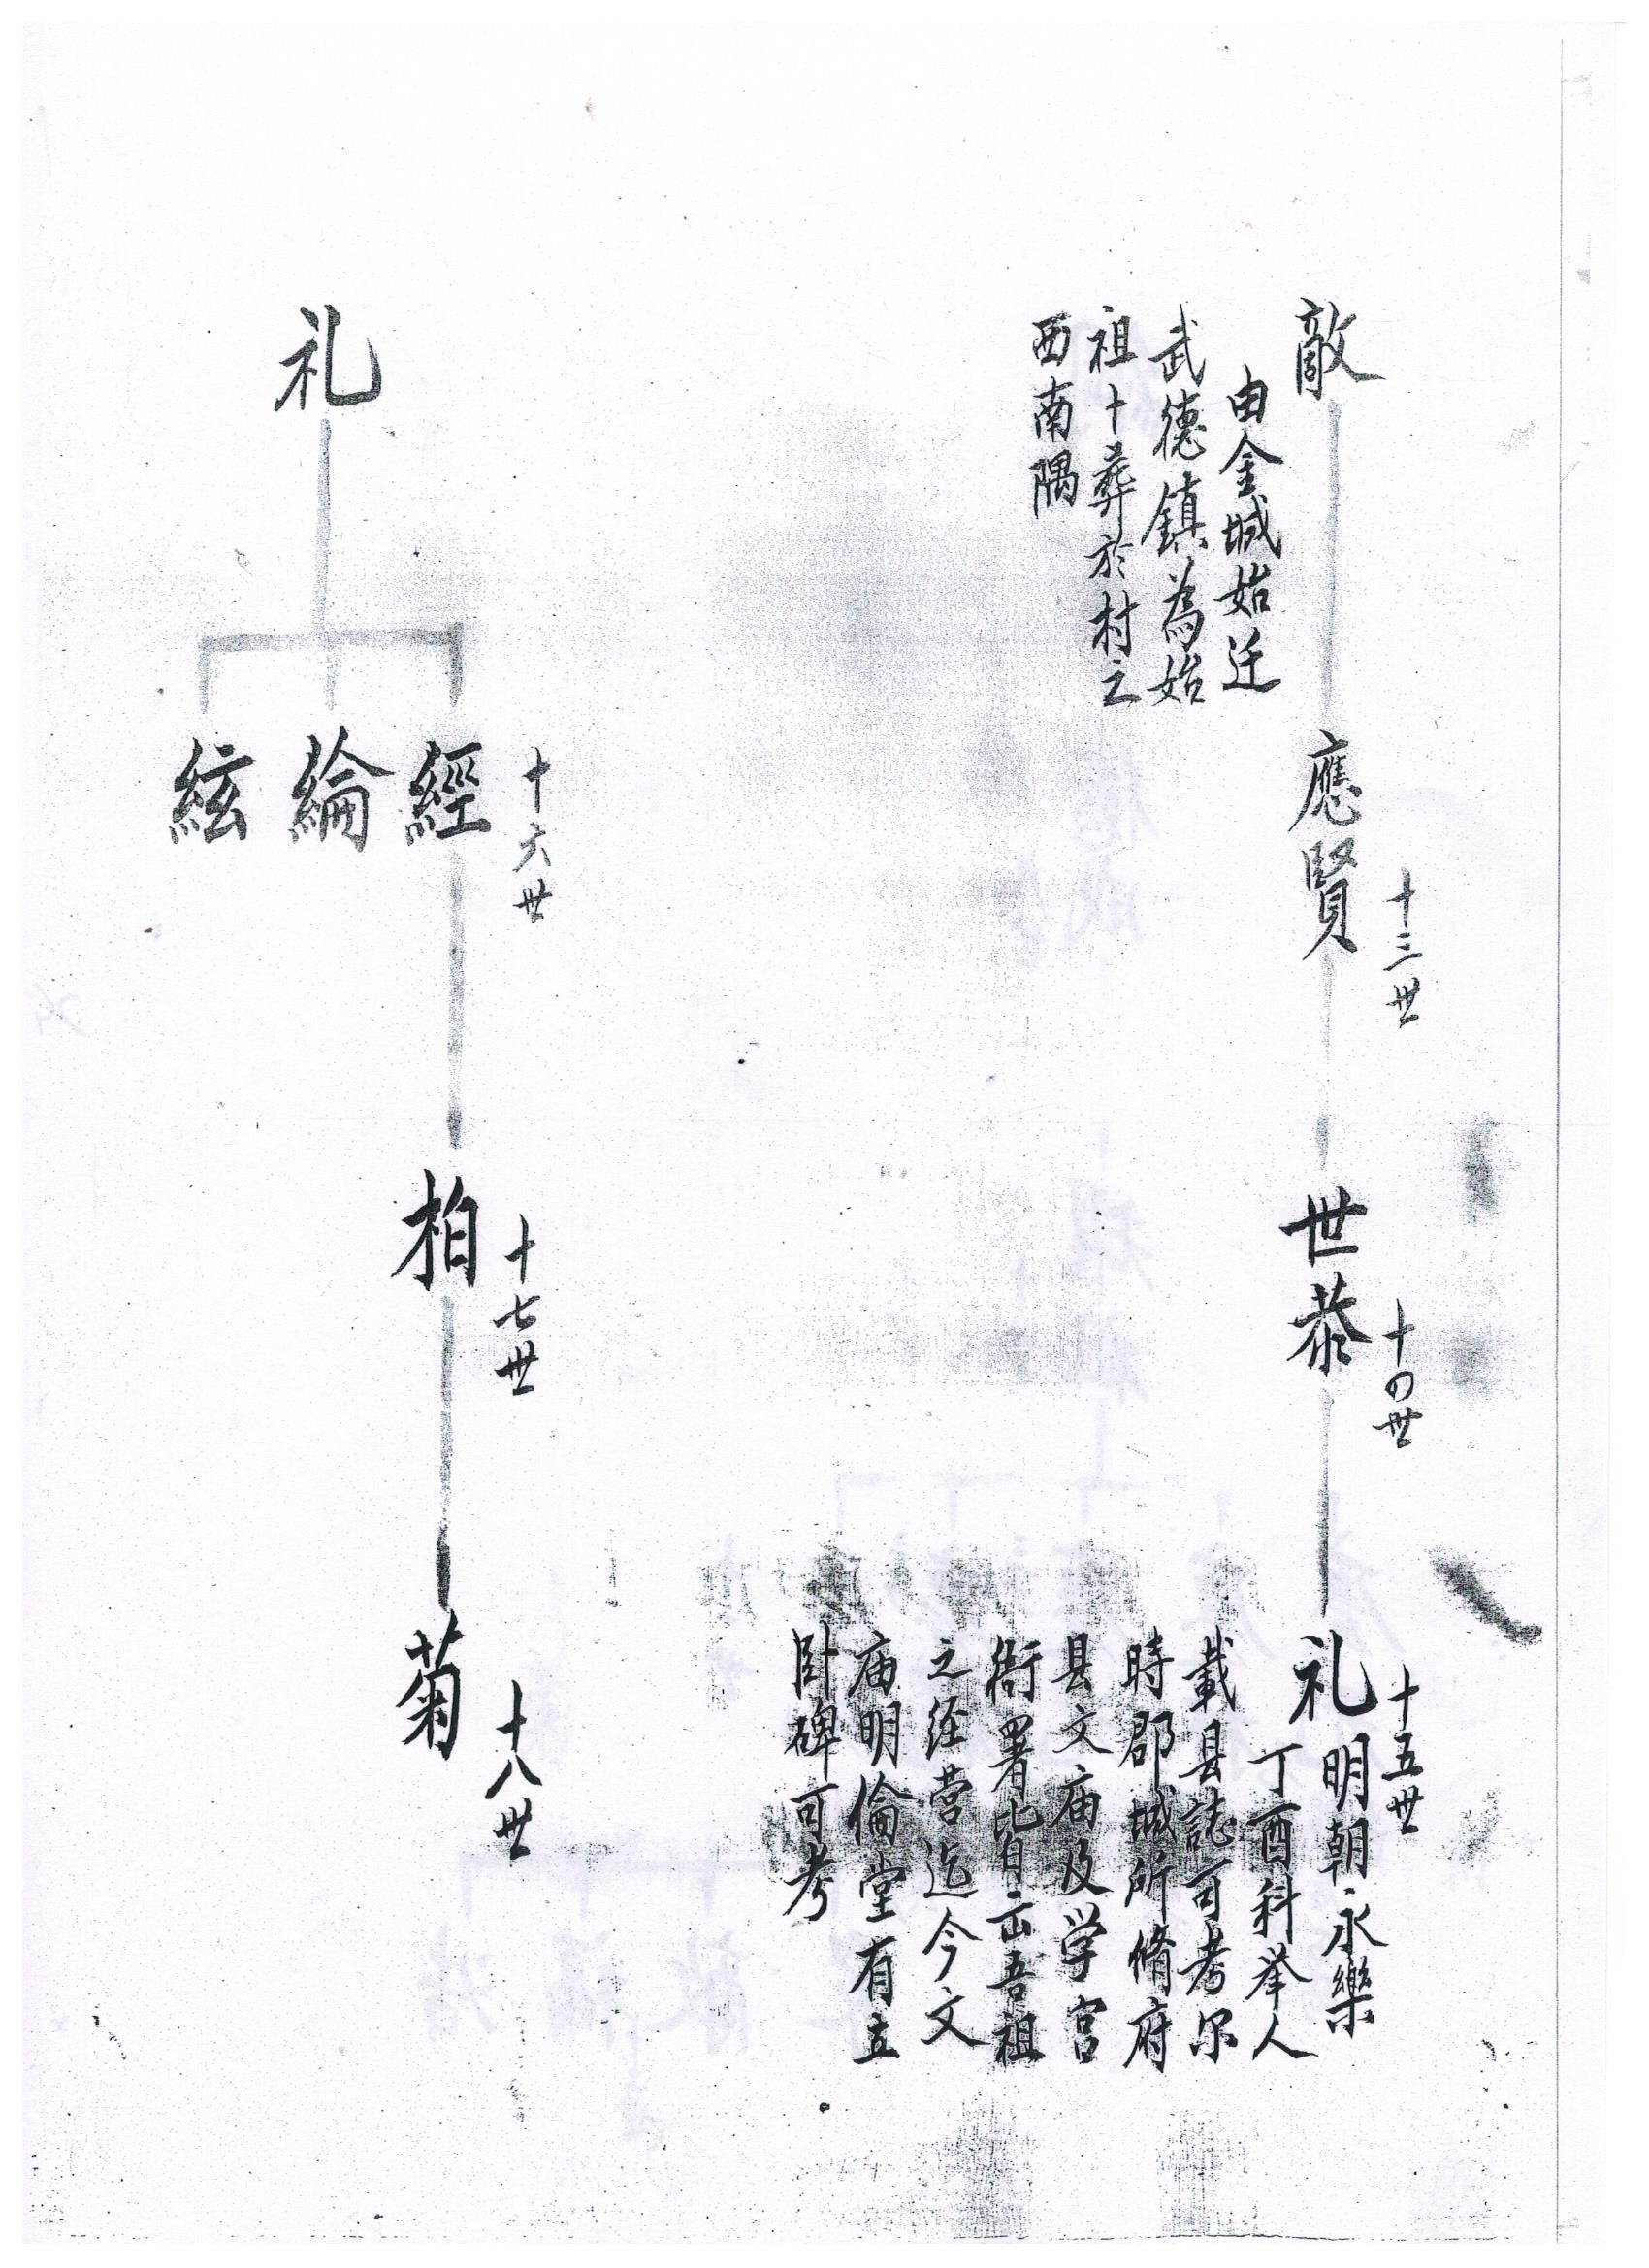 敵
由金城始迁
武德鎮為始
祖卜葬於村之
西南隅
應賢
十三世
世恭
十四世
礼
十五世
明朝永樂
丁酉科举人
載县誌可考尔
時郡城所脩府
县文庙及学宫
衙署皆云吾祖
之经营迄今文
庙明倫堂有立
卧碑可考
礼
經
綸
絃
十六世
柏
十七世
菊
十八世